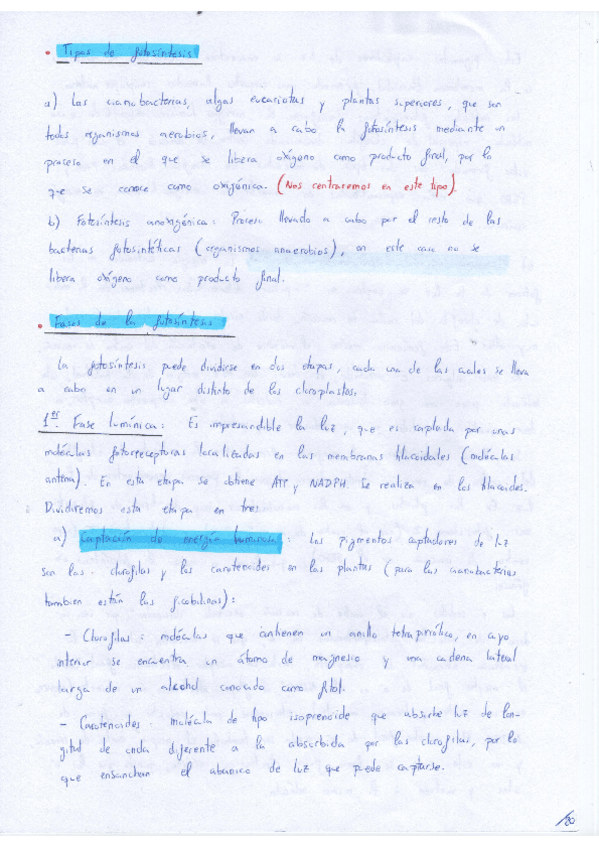 • Tipos de fotosíntesis
a) Las cianobacterias, algas eucariotas y plantas superiores, que son
todos organismos aerobios, llevan a cabo la fotosíntesis mediante un
proceso en el que se libera oxígeno como producto final, por lo
que se conoce como oxigénica. (Nos centraremos en este tipo).
b) Fotosíntesis anoxigénica: Proceso llevado a cabo por el resto de las
bacterias fotosintéticas (organismos anaerobios), en este caso no se
libera oxígeno como producto final.
• Fases de la fotosíntesis
La fotosíntesis puede dividirse en dos etapas, cada una de las cuales se lleva
a cabo en un lugar distinto de los cloroplastos.
1er. Fase lumínica: Es imprescindible la luz, que es captada por unas
moléculas fotorreceptoras localizadas en las membranas tilacoidales (moléculas
antena). En esta etapa se obtiene ATP y NADPH. Se realiza en los tilacoides.
Dividiremos esta etapa en tres
a) Captación de energía luminosa: Los pigmentos captadores de luz
son las clorofilas y los carotenoides en las plantas (para las cianobacterias
tambien están las ficobilinas):
- Clorofilas: moléculas que contienen un anillo tetrapirrólico, en cuyo
interior se encuentra un átomo de magnesio y una cadena lateral
larga de un alcohol conocido como fitol.
- Carotenoides: molécula de tipo isoprenoide que absorbe luz de lon-
gitud de onda diferente a la absorbida por las clorofilas, por lo
que ensanchan el abanico de luz que puede captarse.
/80